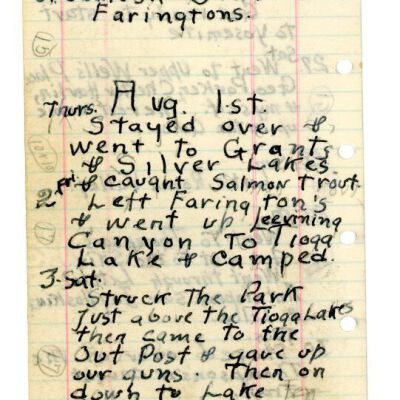 Faringtons.
Thurs. Aug. 1st.
Stayed over &
went to Grants
& Silver Lakes
& caught Salmon Trout.
2 Fri. Left Farington's
& went up Leevining
Canyon To Tioga
Lake & camped.
3-Sat.
Struck The Park
Just above the Tioga Lakes
then came to the
Out Post & gave up
our guns. Then on
down to Lake